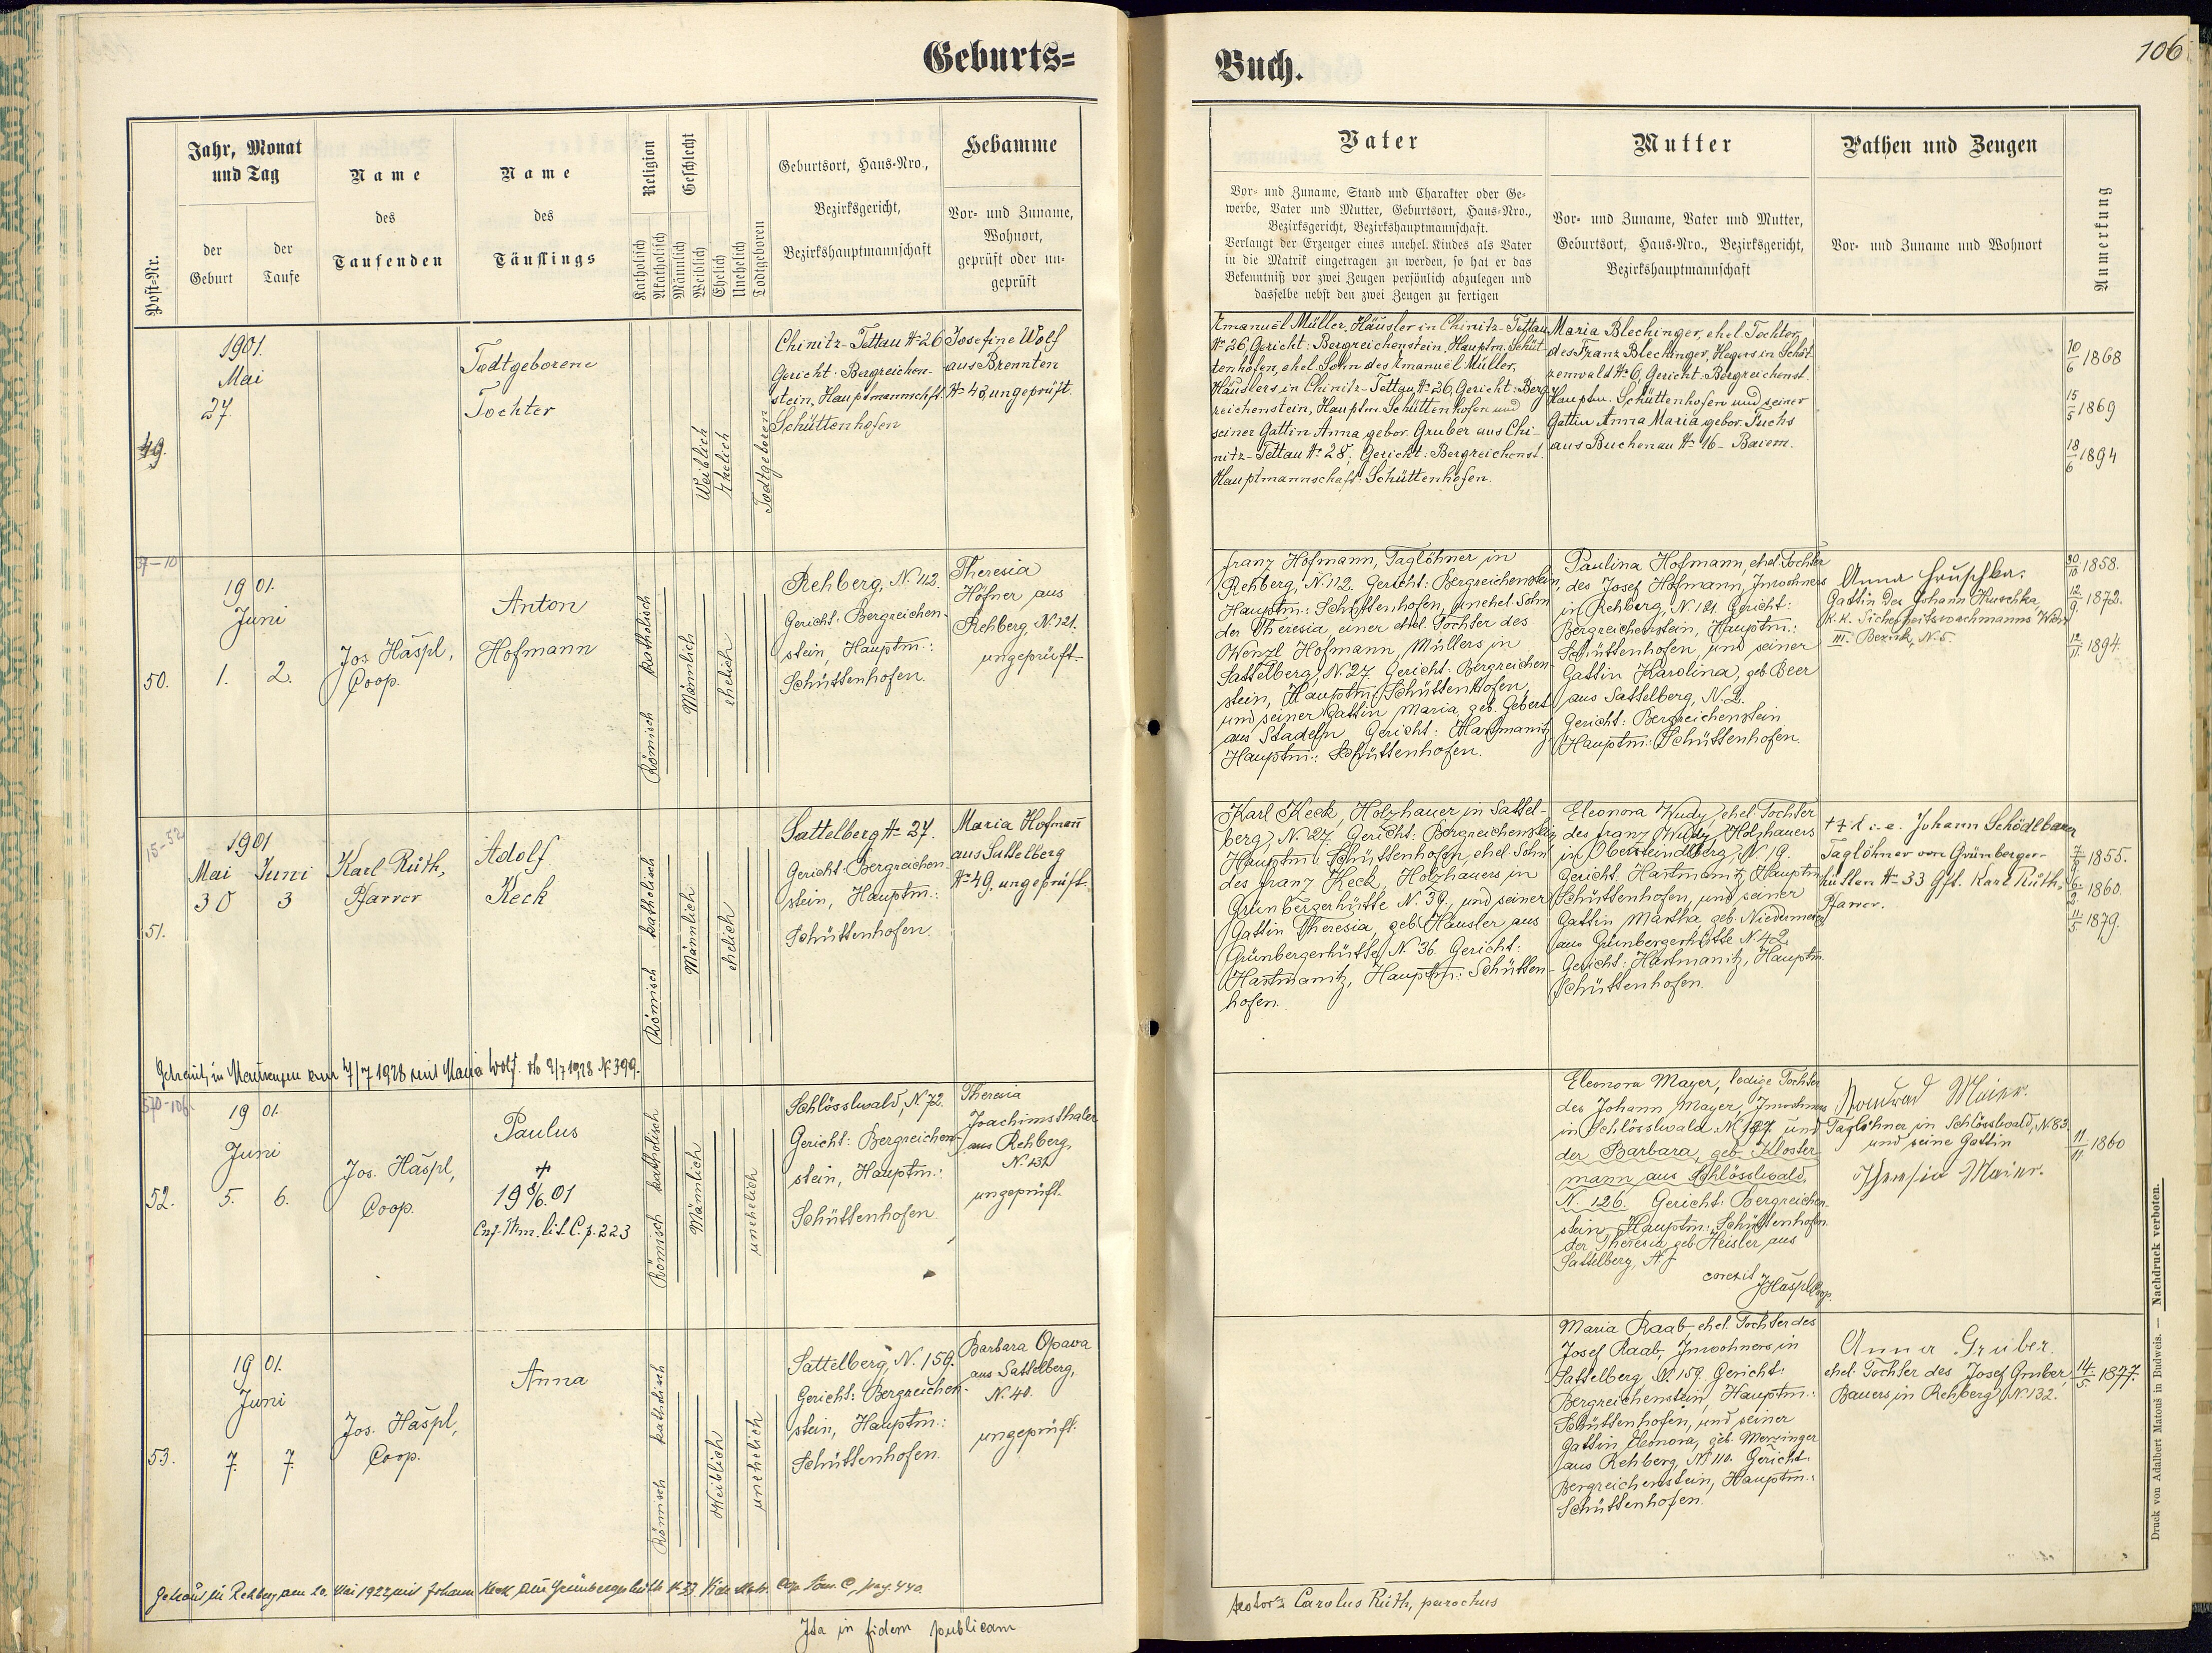 Geburts=
Buch.
106
Post-Nr.
Jahr, Monat
und Tag
der
Geburt
der
Taufe
Name
des
Taufenden
Name
des
Täuflings
Religion
Katholisch
Akatholisch
Geschlecht
Männlich
Weiblich
Ehelich
Unehelich
Todtgeboren
Geburtsort, Haus-Nro.,
Bezirksgericht,
Bezirkshauptmannschaft
Hebamme
Vor- und Zuname,
Wohnort,
geprüft oder un-
geprüft
Vater
Vor- und Zuname, Stand und Charakter oder Ge-
werbe, Vater und Mutter, Geburtsort, Haus-Nro.,
Bezirksgericht, Bezirkshauptmannschaft.
Verlangt der Erzeuger eines unehel. Kindes als Vater
in die Matrik eingetragen zu werden, so hat er das
Bekenntniß vor zwei Zeugen persönlich abzulegen und
dasselbe nebst den zwei Zeugen zu fertigen
Mutter
Vor- und Zuname, Vater und Mutter,
Geburtsort, Haus-Nro., Bezirksgericht,
Bezirkshauptmannschaft
Pathen und Zeugen
Vor- und Zuname und Wohnort
Anmerkung
49.
1901.
Mai
27.
Todtgeborene
Tochter
Weiblich
Ehelich
Todtgeboren
Chinitz-Tettau № 26
Gericht: Bergreichen-
stein, Hauptmannschft.
Schüttenhofen
Josefine Wolf
aus Brennten
№ 48, ungeprüft.
Emanuël Müller, Häusler in Chinitz-Tettau
№ 26, Gericht: Bergreichenstein, Hauptm. Schüt-
tenhofen, ehel. Sohn des Emanuël Müller,
Häuslers in Chinitz-Tettau № 26, Gericht: Berg-
reichenstein, Hauptm. Schüttenhofen und
seiner Gattin Anna gebor. Gruber aus Chi-
nitz-Tettau № 28, Gericht: Bergreichenst.
Hauptmannschaft: Schüttenhofen.
Maria Blechinger, ehel. Tochter
des Franz Blechinger, Hegers in Schät-
zenwald № 6, Gericht: Bergreichenst.
Hauptm. Schüttenhofen und seiner
Gattin Anna Maria gebor. Fuchs
aus Buchenau № 16 - Baiern.
10/6 1868
15/5 1869
18/6 1894
37-10
50.
1901.
Juni
1. 2.
Jos. Haspl,
Coop.
Anton
Hofmann
Römisch katholisch
Männlich
ehelich
Rehberg, N. 112.
Gericht: Bergreichen-
stein, Hauptm.:
Schüttenhofen.
Theresia
Höfner aus
Rehberg, N. 121.
ungeprüft.
Franz Hofmann, Taglöhner in
Rehberg, N. 112. Gericht: Bergreichenstein,
Hauptm.: Schüttenhofen, unehel. Sohn
der Theresia, einer ehel. Tochter des
Wenzl Hofmann, Müllers in
Sattelberg, N. 27. Gericht: Bergreichen-
stein, Hauptm.: Schüttenhofen,
und seiner Gattin Maria, geb. Gebert
aus Stadeln Gericht: Hartmanitz
Hauptm.: Schüttenhofen.
Paulina Hofmann, ehel. Tochter
des Josef Hofmann, Inwohners
in Rehberg, N. 121. Gericht:
Bergreichenstein, Hauptm.:
Schüttenhofen, und seiner
Gattin Karolina, geb. Beer
aus Sattelberg, N. 2.
Gericht: Bergreichenstein
Hauptm.: Schüttenhofen.
Anna Hruschka.
Gattin des Johann Hruschka,
k.k. Sicherheitswachmanns Wien
III. Bezirk, N. 5.
30/10 1858.
12/9 1872.
12/11 1894.
15-52
51.
1901
Mai Juni
30 3
Karl Rüth,
Pfarrer
Adolf
Keck
Römisch katholisch
Männlich
ehelich
Sattelberg № 27.
Gericht: Bergreichen-
stein, Hauptm.:
Schüttenhofen.
Maria Hofmann
aus Sattelberg
№ 49, ungeprüft.
Karl Keck, Holzhauer in Sattel-
berg, N. 27. Gericht: Bergreichenstein
Hauptm.: Schüttenhofen, ehel. Sohn
des Franz Keck, Holzhauers in
Grünbergerhütte N. 39., und seiner
Gattin Theresia, geb. Häusler aus
Grünbergerhütte, N. 36. Gericht:
Hartmanitz, Hauptm.: Schütten-
hofen.
Eleonora Wudy, ehel. Tochter
des Franz Wudy, Holzhauers
in Obersteindlberg, N. 9.
Gericht: Hartmanitz, Hauptm.
Schüttenhofen, und seiner
Gattin Martha, geb. Niedermeier
aus Grünbergerhütte N. 42.
Gericht: Hartmanitz, Hauptm.
Schüttenhofen.
+++ i. e. Johann Schödlbauer
Taglöhner von Grünberger-
hütten № 33 Gft. Karl Rüth,
Pfarrer.
1855.
1860.
11/5 1879.
Getraut in am 7/7 1928 mit Maria Wolf. 9/7 1928 № 399.
570-106.
52.
1901.
Juni
5. 6.
Jos. Haspl,
Coop.
Paulus
+
19 8/6 01
lit. C. p. 223
Römisch katholisch
Männlich
unehelich
Schlösslwald, N. 72.
Gericht: Bergreichen-
stein, Hauptm.:
Schüttenhofen.
Theresia
Joachimsthaler
aus Rehberg,
N. 131.
ungeprüft.
Eleonora Mayer, ledige Tochter
des Johann Mayer, Inwohners
in Schlösslwald N. 127, und
der Barbara, geb. Kloster-
mann aus Schlösslwald,
N. 126. Gericht: Bergreichen-
stein, Hauptm.: Schüttenhofen.
der Theresia geb. Heisler aus
Sattelberg,
correxit
JHaspl Coop.
Konrad Maier.
Taglöhner in Schlösslwald, N. 83.
und seine Gattin
Theresia Maier.
11/11 1860
53.
1901.
Juni
7. 7.
Jos. Haspl,
Coop.
Anna
Römisch katholisch
Weiblich
unehelich
Sattelberg, N. 159.
Gericht: Bergreichen-
stein, Hauptm.:
Schüttenhofen.
Barbara Opava
aus Sattelberg,
N. 40.
ungeprüft.
Maria Raab, ehel. Tochter des
Josef Raab, Inwohners in
Sattelberg, N. 159. Gericht:
Bergreichenstein, Hauptm.:
Schüttenhofen, und seiner
Gattin Eleonora, geb. Merzinger
aus Rehberg, N. 110. Gericht:
Bergreichenstein, Hauptm.:
Schüttenhofen.
Anna Gruber.
ehel. Tochter des Josef Gruber,
Bauers in Rehberg, N. 132.
14/5 1877.
Getraut in Rehberg am 20. Mai 1922 mit Johann Keck aus Grünbergerhütte № 33. Vide Matr. Cop. Tom. C, pag. 440.
Ita in fidem publicam
Carolus Rüth, parochus
Druck von Adalbert Matouš in Budweis. — Nachdruck verboten.